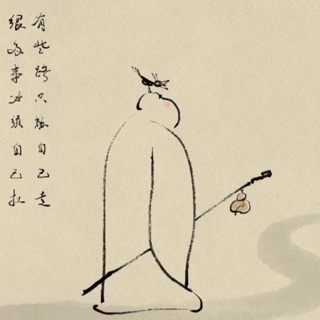 有些路只能自己走
很多事必须自己扛